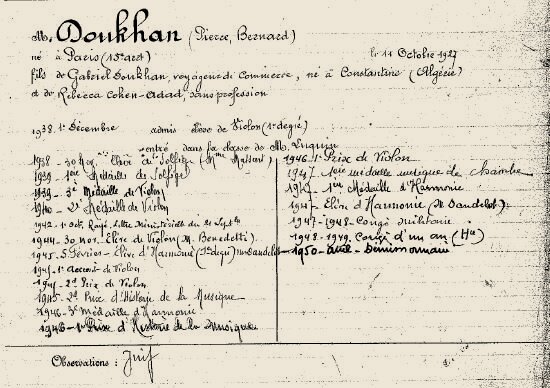 M. Doukhan (Pierre, Bernard)
né à Paris (15e arrt) le 11 Octobre 1927
fils de Gabriel Doukhan, voyageur de Commerce, né à Constantine (Algérie)
et de Rebecca Cohen-Adad, sans profession
1938. 1er Décembre admis élève de Violon (1er degré)
entré dans la classe de M. Luquin
1938 - 30 Nov. Elève de Solfège (Mme Massart)
1939 - 1ère Médaille de Solfège
1939 - 3e Médaille de Violon
1940 - 2e Médaille de Violon
1942 - 1er Oct. Rayé, Lettre Ministérielle du Sept.
1944 - 30 nov. Elève de Violon (M. Benedetti)
1945 - 5 Février - Elève d'Harmonie (M. Dandelot)
1945 - 1er Accessit de Violon
1945 - 2d Prix de Violon
1945 - 2d Prix d'Histoire de la Musique
1946 - 3e Médaille d'Harmonie
1946 - 1er Prix d'Histoire de la Musique
1946 - 1er Prix de Violon
1947 - 1ère médaille musique de chambre
1ère Médaille d'Harmonie
1947 - Elève d'Harmonie (M. Dandelot)
1947 - 1948 - Congé militaire
1948 - 1949. Congé d'un an (Hie)
1950 - avril - Démissionnaire
Observations : Juif